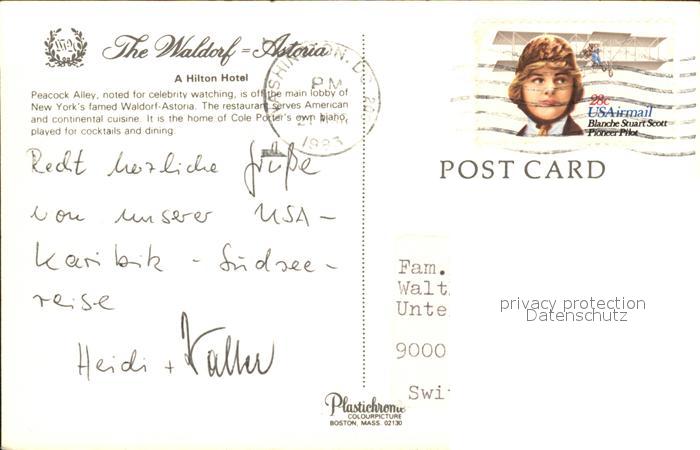 The Waldorf=Astoria
A Hilton Hotel
Peacock Alley, noted for celebrity watching, is off the main lobby of
New York's famed Waldorf-Astoria. The restaurant serves American
and continental cuisine. It is the home of Cole Porter's own piano,
played for cocktails and dining.
WASHINGTON, D.C.
PM
1983
28c
USAirmail
Blanche Stuart Scott
Pioneer Pilot
POST CARD
Recht herzliche Grüße
von unserer USA-
Karibik - Südsee-
reise
Heidi + Walter
Fam.
Walt
Unte
9000
Swi
privacy protection
Datenschutz
Plastichrome
COLOURPICTURE
BOSTON, MASS. 02130